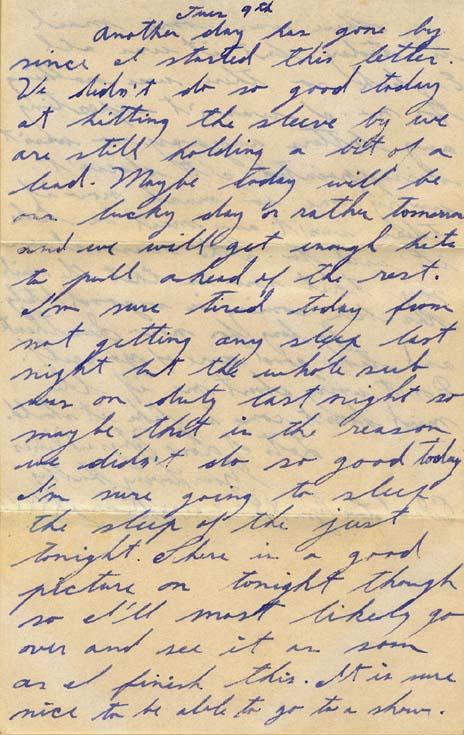 Tues 9th
Another day has gone by
since I started this letter.
We didn't do so good today
at hitting the sleeve by we
are still holding a bit of a
lead. Maybe today will be
our lucky day or rather tomorrow
and we will get enough hits
to pull ahead of the rest.
I'm sure tired today from
not getting any sleep last
night but the whole sub
was on duty last night so
maybe that is the reason
we didn't do so good today
I'm sure going to sleep
the sleep of the just
tonight. There is a good
picture on tonight though
so I'll most likely go
over and see it as soon
as I finish this. It is sure
nice to be able to go to a show.